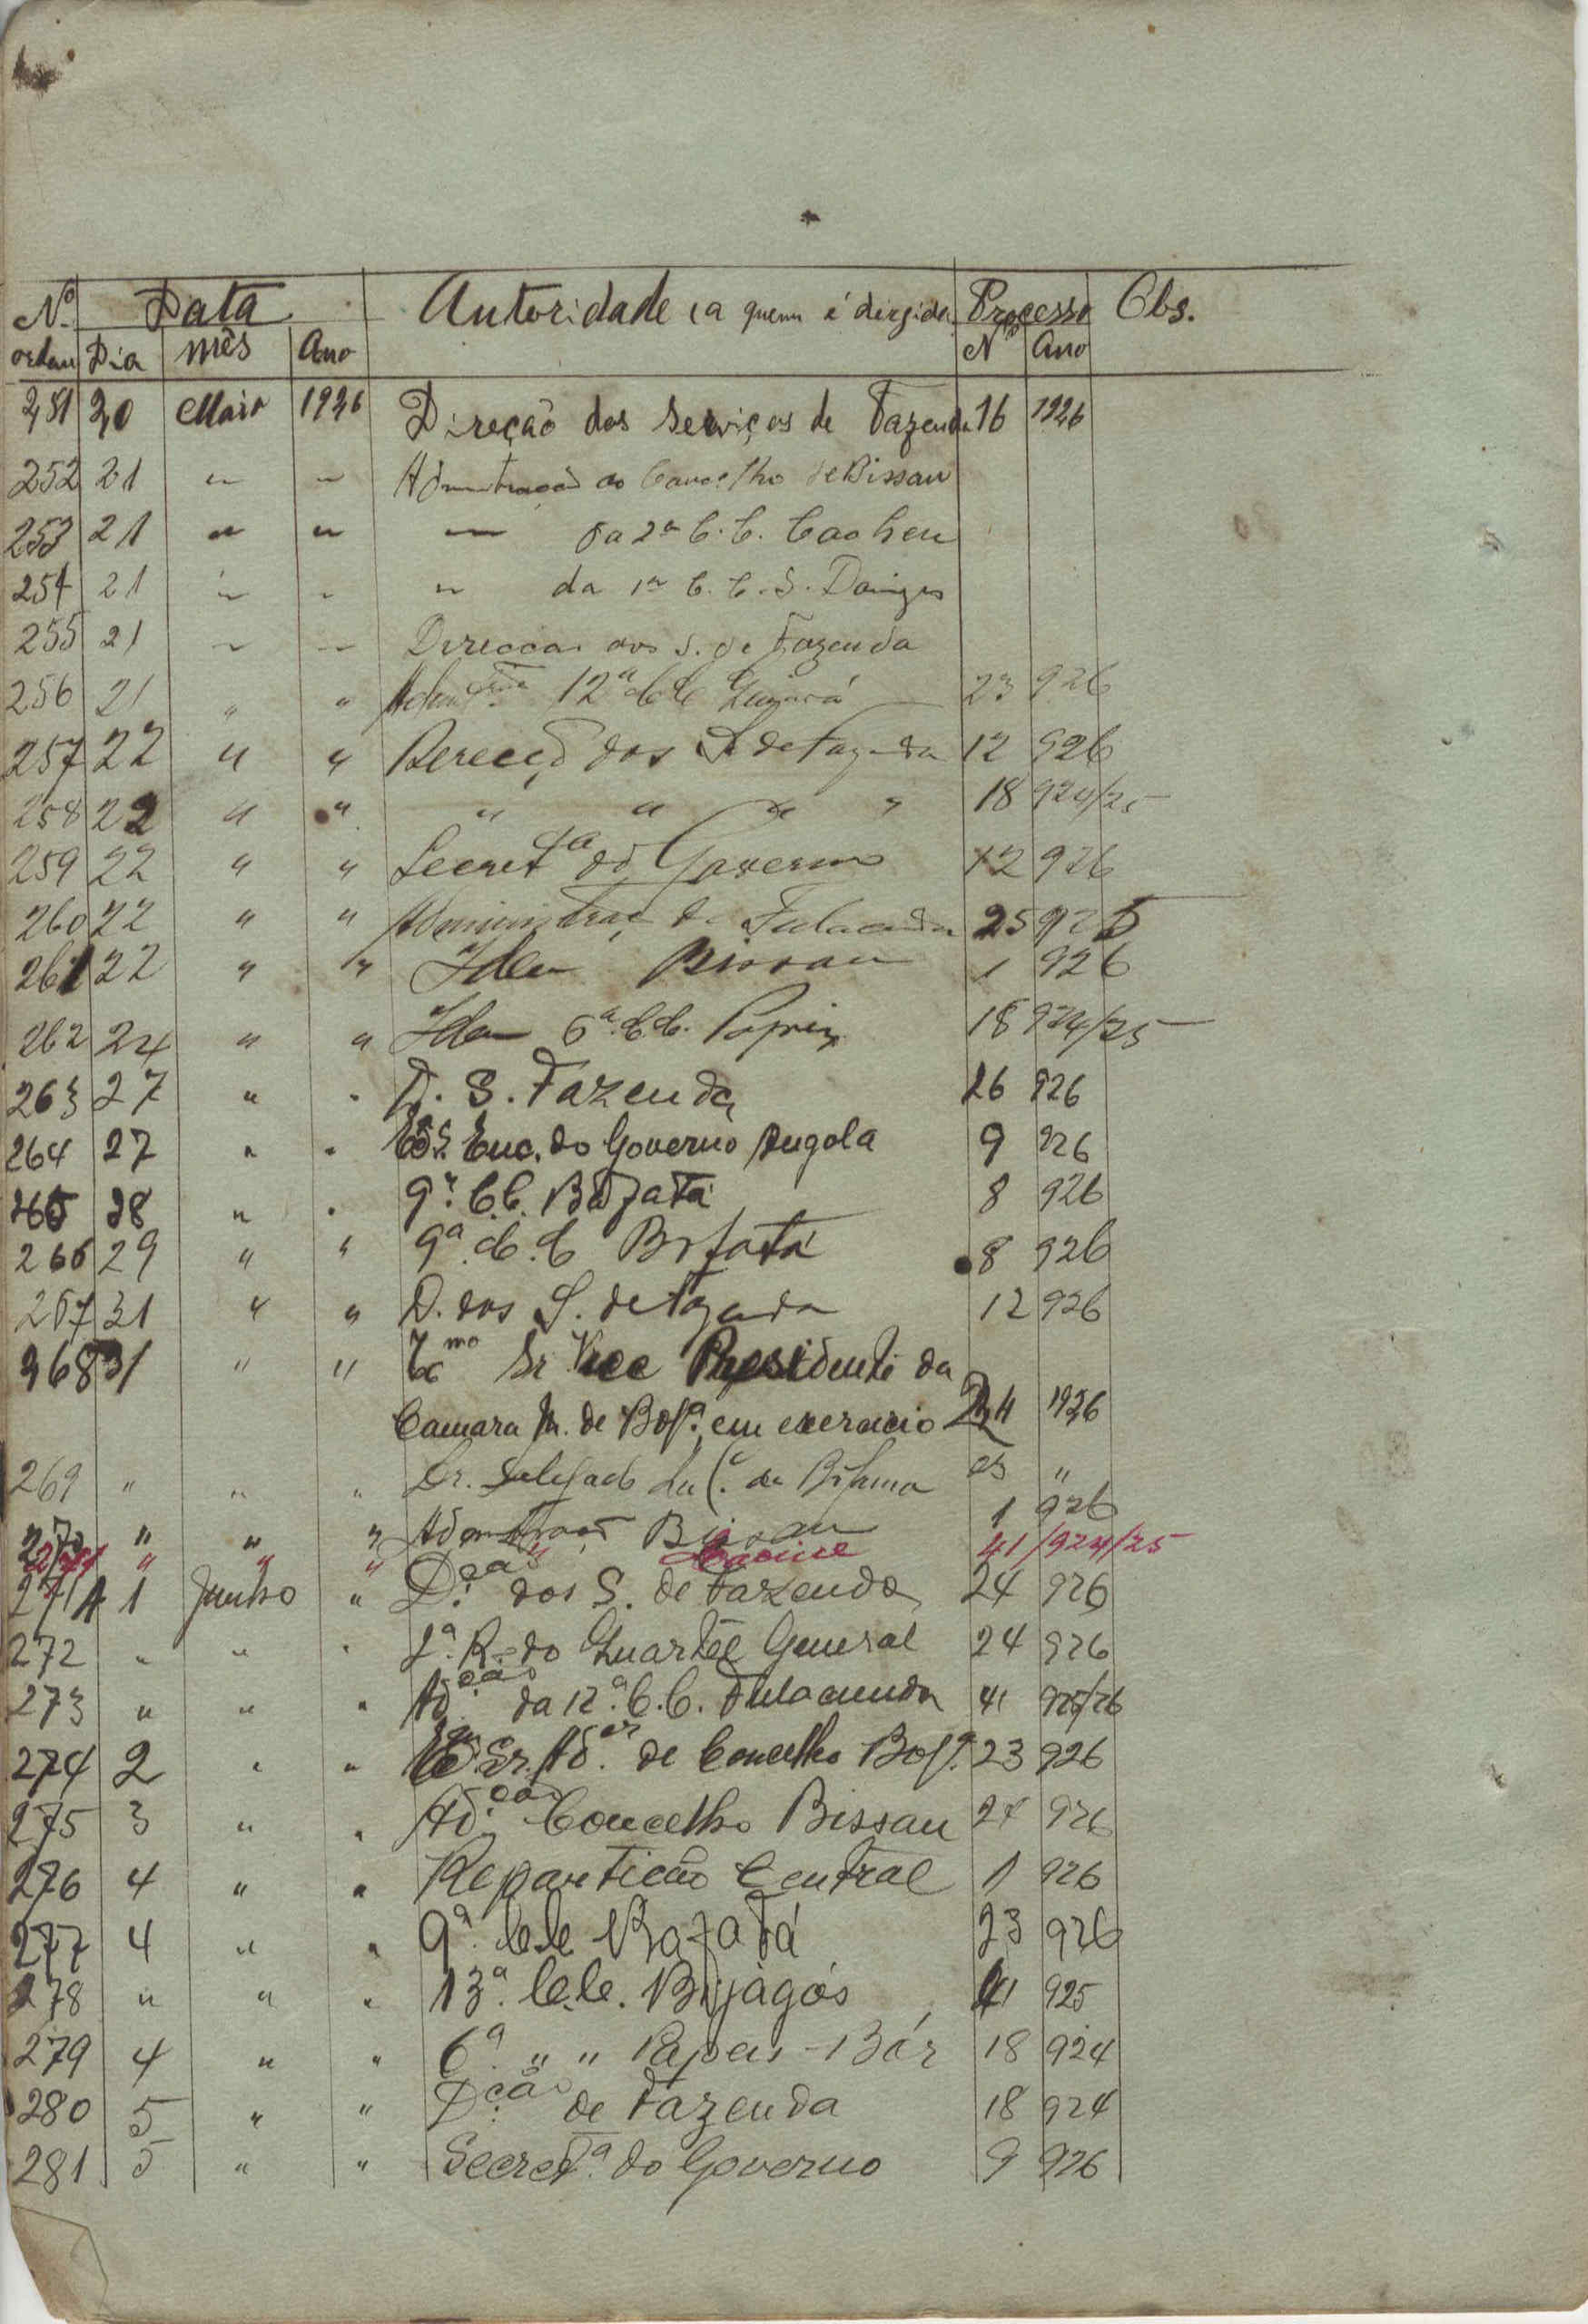 Nº Data Autoridade (a quem é dirgida Processo Obs.
ordem Dia mês Ano Nº Ano
251 20 Maio 1926 Direção dos Serviços de Fazenda 16 1926
252 21 " " Admtração do Concelho de Bissau
253 21 " " " da 2ª C. C. Cacheu
254 21 " " " da 1ª C. C. S. Domigos
255 21 " " Direccao dos S. de Fazenda
256 21 " " 12ª C C 23 926
257 22 " " Derecç dos S. de Fazenda 12 926
258 22 " " " " " " 18 924/25
259 22 " " Secretª do Governo 12 926
260 22 " " Administraç de Fulacunda 25 925
261 22 " " Idem Bissau 1 926
262 24 " " Idem 6ª C.C. Papeis 18 924/25
263 27 " " D. S. Fazenda 26 926
264 27 " " Enc. do Governo Angola 9 926
265 28 " " 9ª C.C. Bafatá 8 926
266 29 " " 9ª C. C Bafatá 8 926
267 31 " " D. dos S. de Fazenda 12 926
268 31 " " Exmo Sr Vice Presidente da
Camara M. de Bolª em exercicio 24 1926
269 " " " Sr. de Bolama 23 "
270 " " " Admtração Bissau 1 926
271 " " " " Cacine 41 /924/25
271A 1 Junho " Dção dos S. de Fazenda 24 926
272 " " " 1ª R. do Quartel General 24 926
273 " " " Adção da 12ª C.C. Fulacunda 41 925/26
274 2 " " Exmo Sr. Ador de Concelho Bolª 23 926
275 3 " " Adção Concelho Bissau 24 926
276 4 " " Repartição Central 1 926
277 4 " " 9ª C.C. Bafatá 23 926
278 " " " 13ª C.C. Bijagós 41 925
279 4 " " 6ª " " Papeis - Bór 18 924
280 5 " " Dção de Fazenda 18 924
281 5 " " Secretª do Governo 9 926